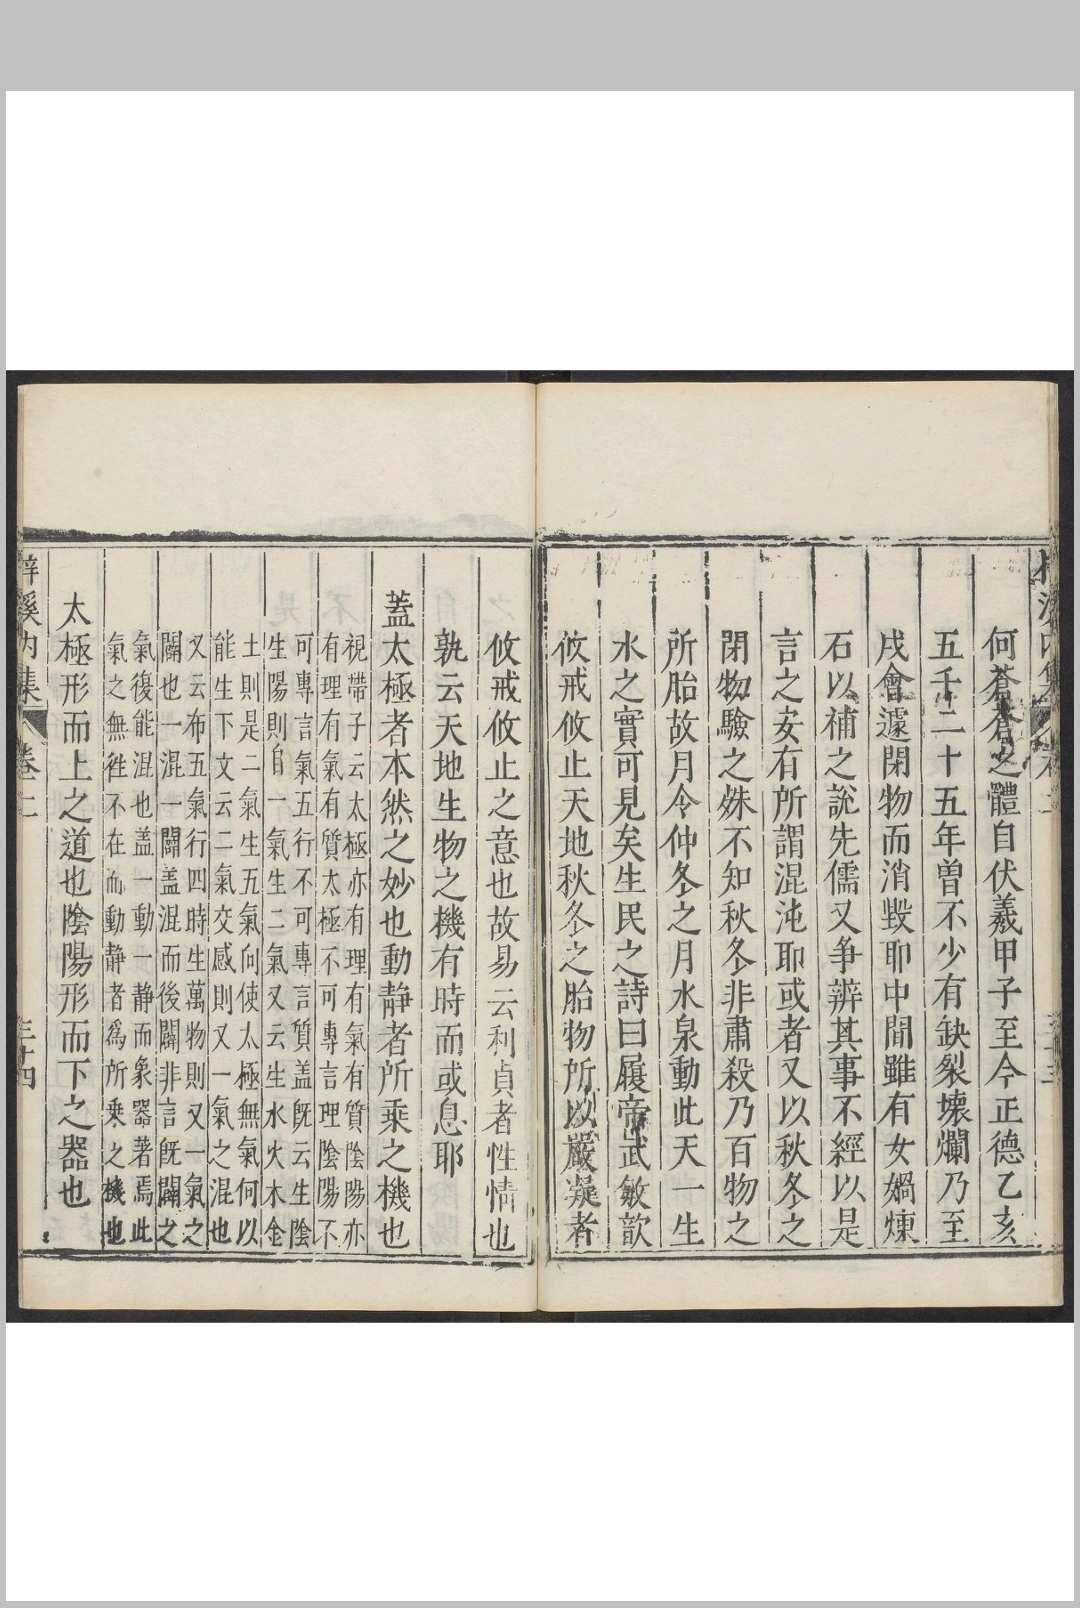 何蒼蒼之體自伏羲甲子至今正德乙亥
五千二十五年曾不少有缺裂壞爛乃至
戌會遽閉物而消毀耶中間雖有女媧煉
石以補之說先儒又爭辨其事不經以是
言之安有所謂混沌耶或者又以秋冬之
閉物驗之姝不知秋冬非肅殺乃百物之
所胎故月令仲冬之月水泉動此天一生
水之實可見矣生民之詩曰履帝武敏歆
攸戒攸止天地秋冬之胎物所以嚴凝者
攸戒攸止之意也故易云利貞者性情也
孰云天地生物之機有時而或息耶
蓋太極者本然之妙也動靜者所乘之機也
視帶子云太極亦有理有氣有質陰陽亦
有理有氣有質太極不可專言理陰陽不
可專言氣五行不可專言質盖旣云生陰
生陽則自一氣生二氣又云生水火木金
土則是二氣生五氣向使太極無氣何以
能生下文云二氣交感則又一氣之混也
又云布五氣行四時生萬物則又一氣之
闢也一混一闢盖混而後闢非言旣闢之
氣復能混也盖一動一靜而象器著焉此
氣之無徃不在而動靜者爲所乘之機也
太極形而上之道也陰陽形而下之器也
梓溪內集
卷二
三十四